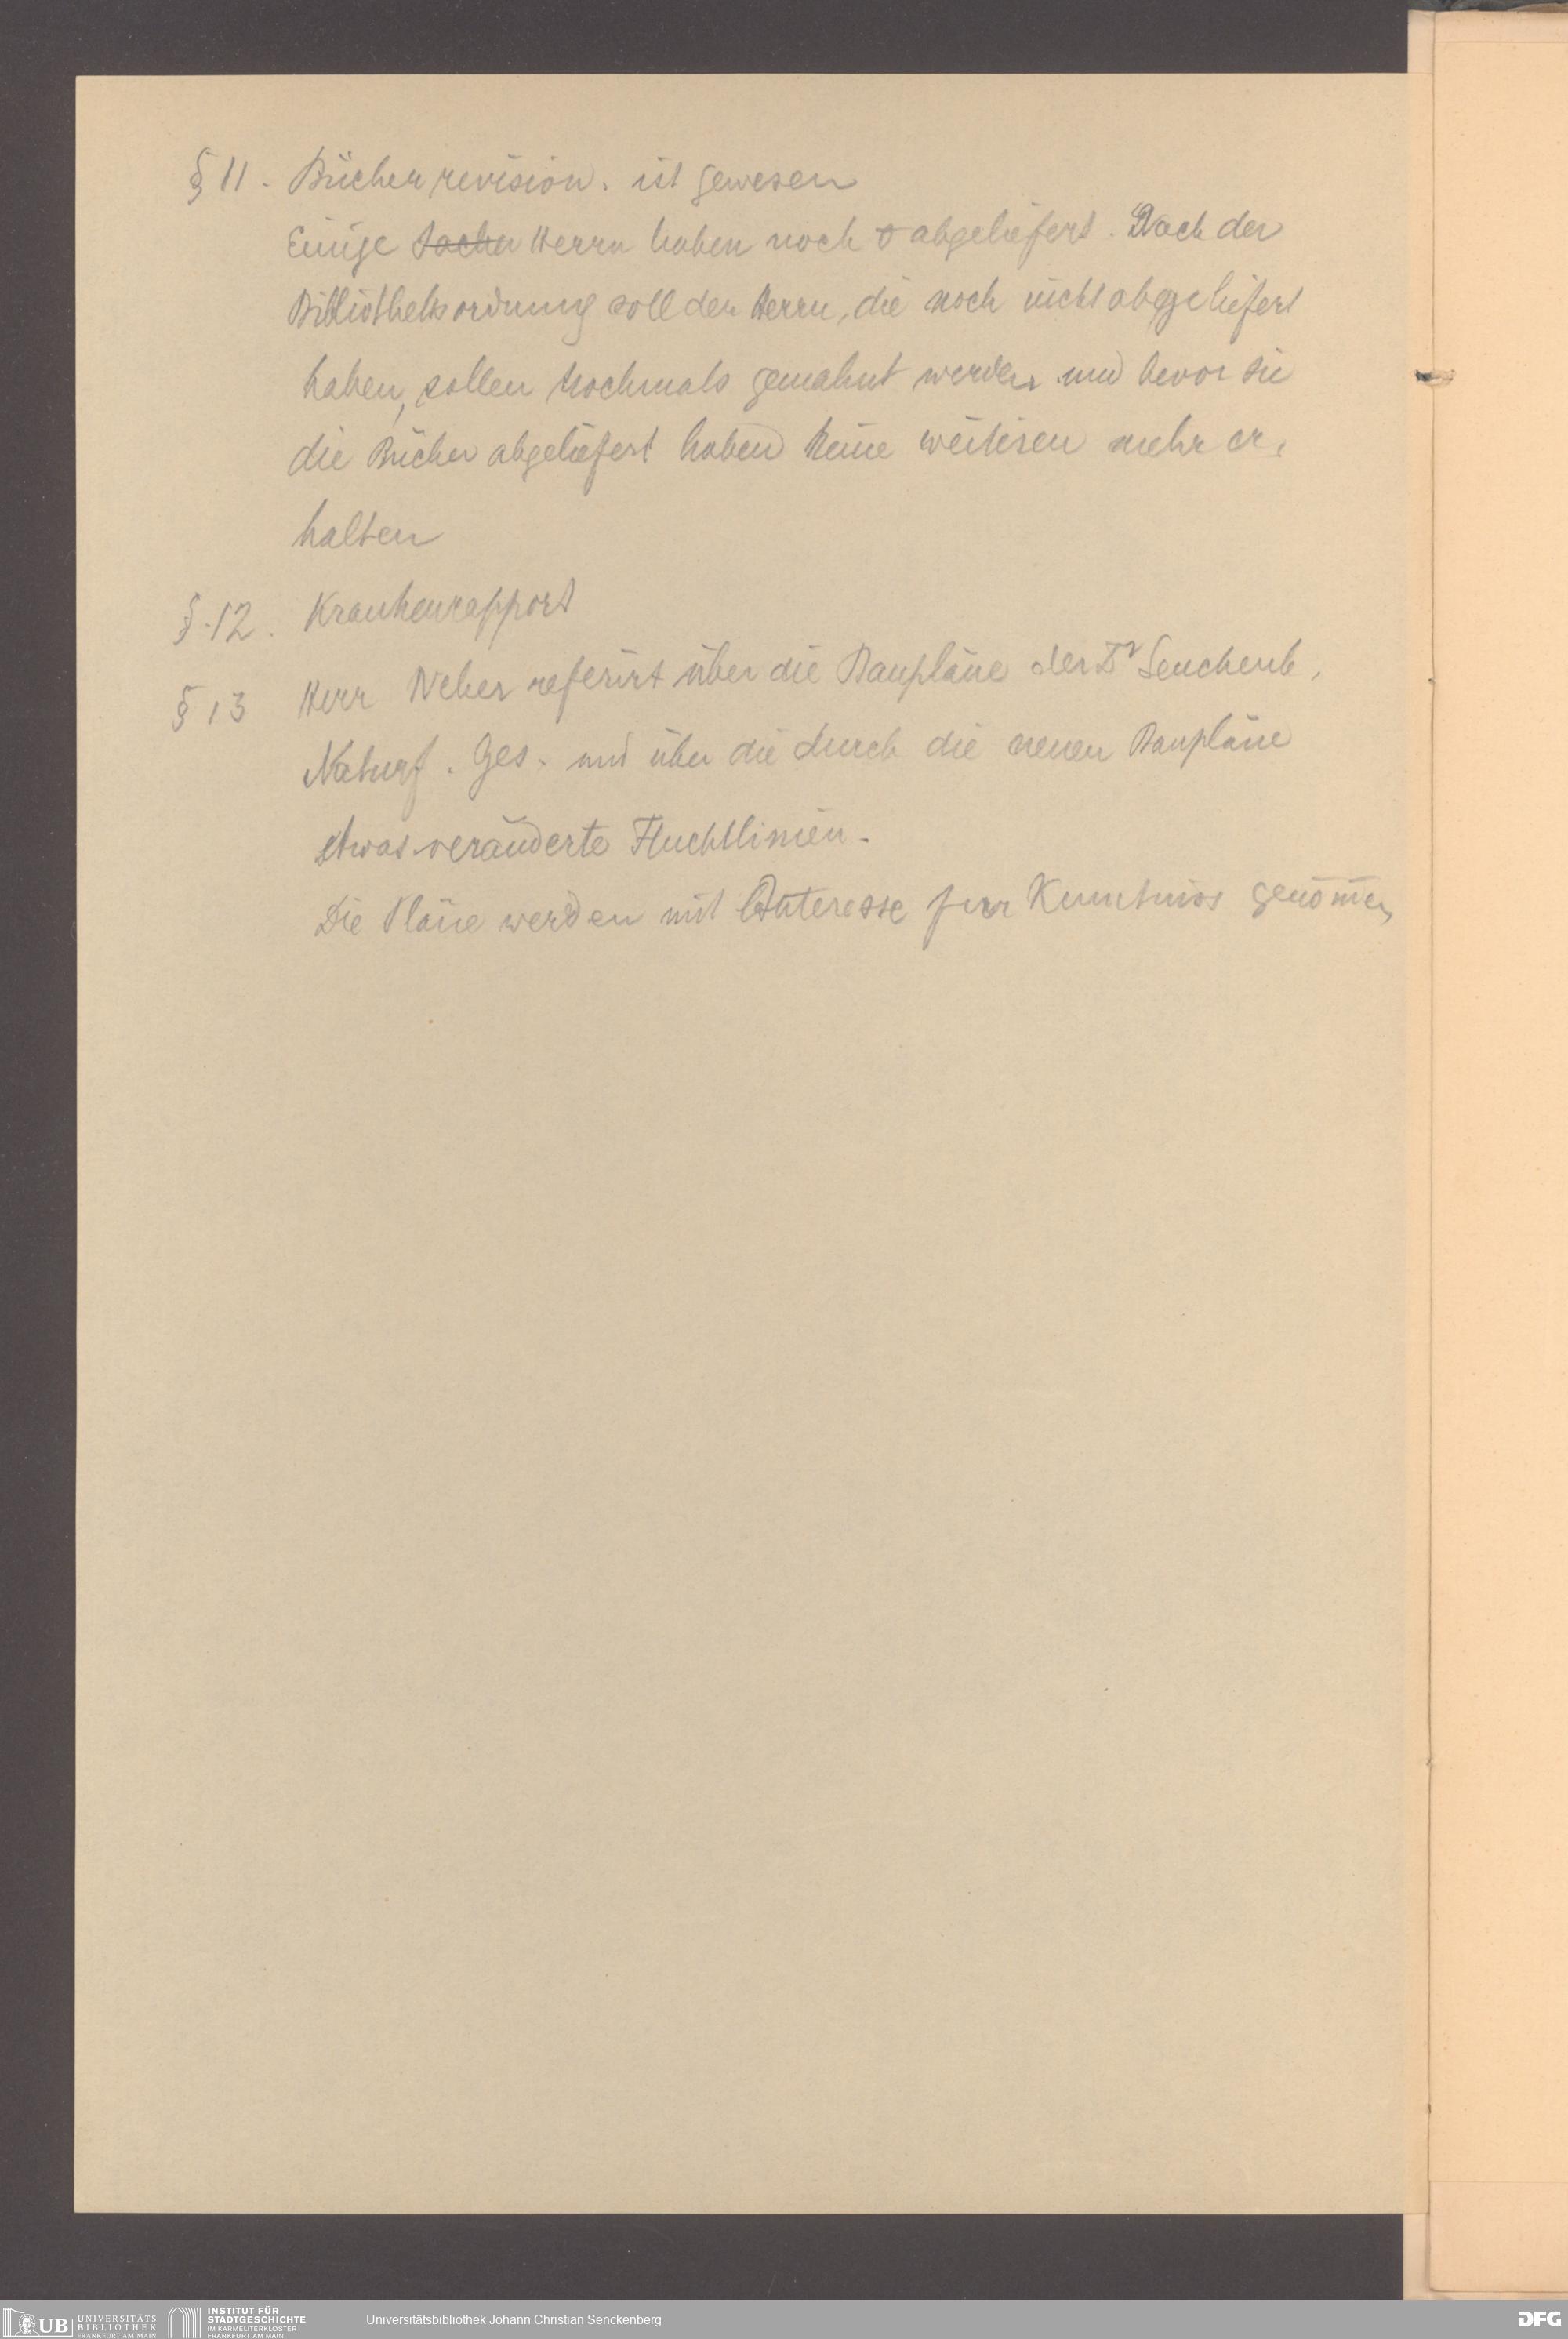 § 11. Bücherrevision. ist gewesen
Einige Sachen Herrn haben noch 0 abgeliefert. Nach der
Bibliotheksordnung soll den Herrn, die noch nicht abgeliefert
haben, sollen nochmals gemahnt werden und bevor sie
die Bücher abgeliefert haben keine weiteren mehr er-
halten
§ 12. Krankenrapport
§ 13 Herr Neher referirt über die Baupläne der Dr Senckenb.
Naturf. Ges. und über die durch die neuen Baupläne
etwas veränderte Fluchtlinien.
Die Pläne werden mit Interesse zur Kenntniss genom̄en
UB UNIVERSITÄTS
BIBLIOTHEK
FRANKFURT AM MAIN
INSTITUT FÜR
STADTGESCHICHTE
IM KARMELITERKLOSTER
FRANKFURT AM MAIN
Universitätsbibliothek Johann Christian Senckenberg
DFG